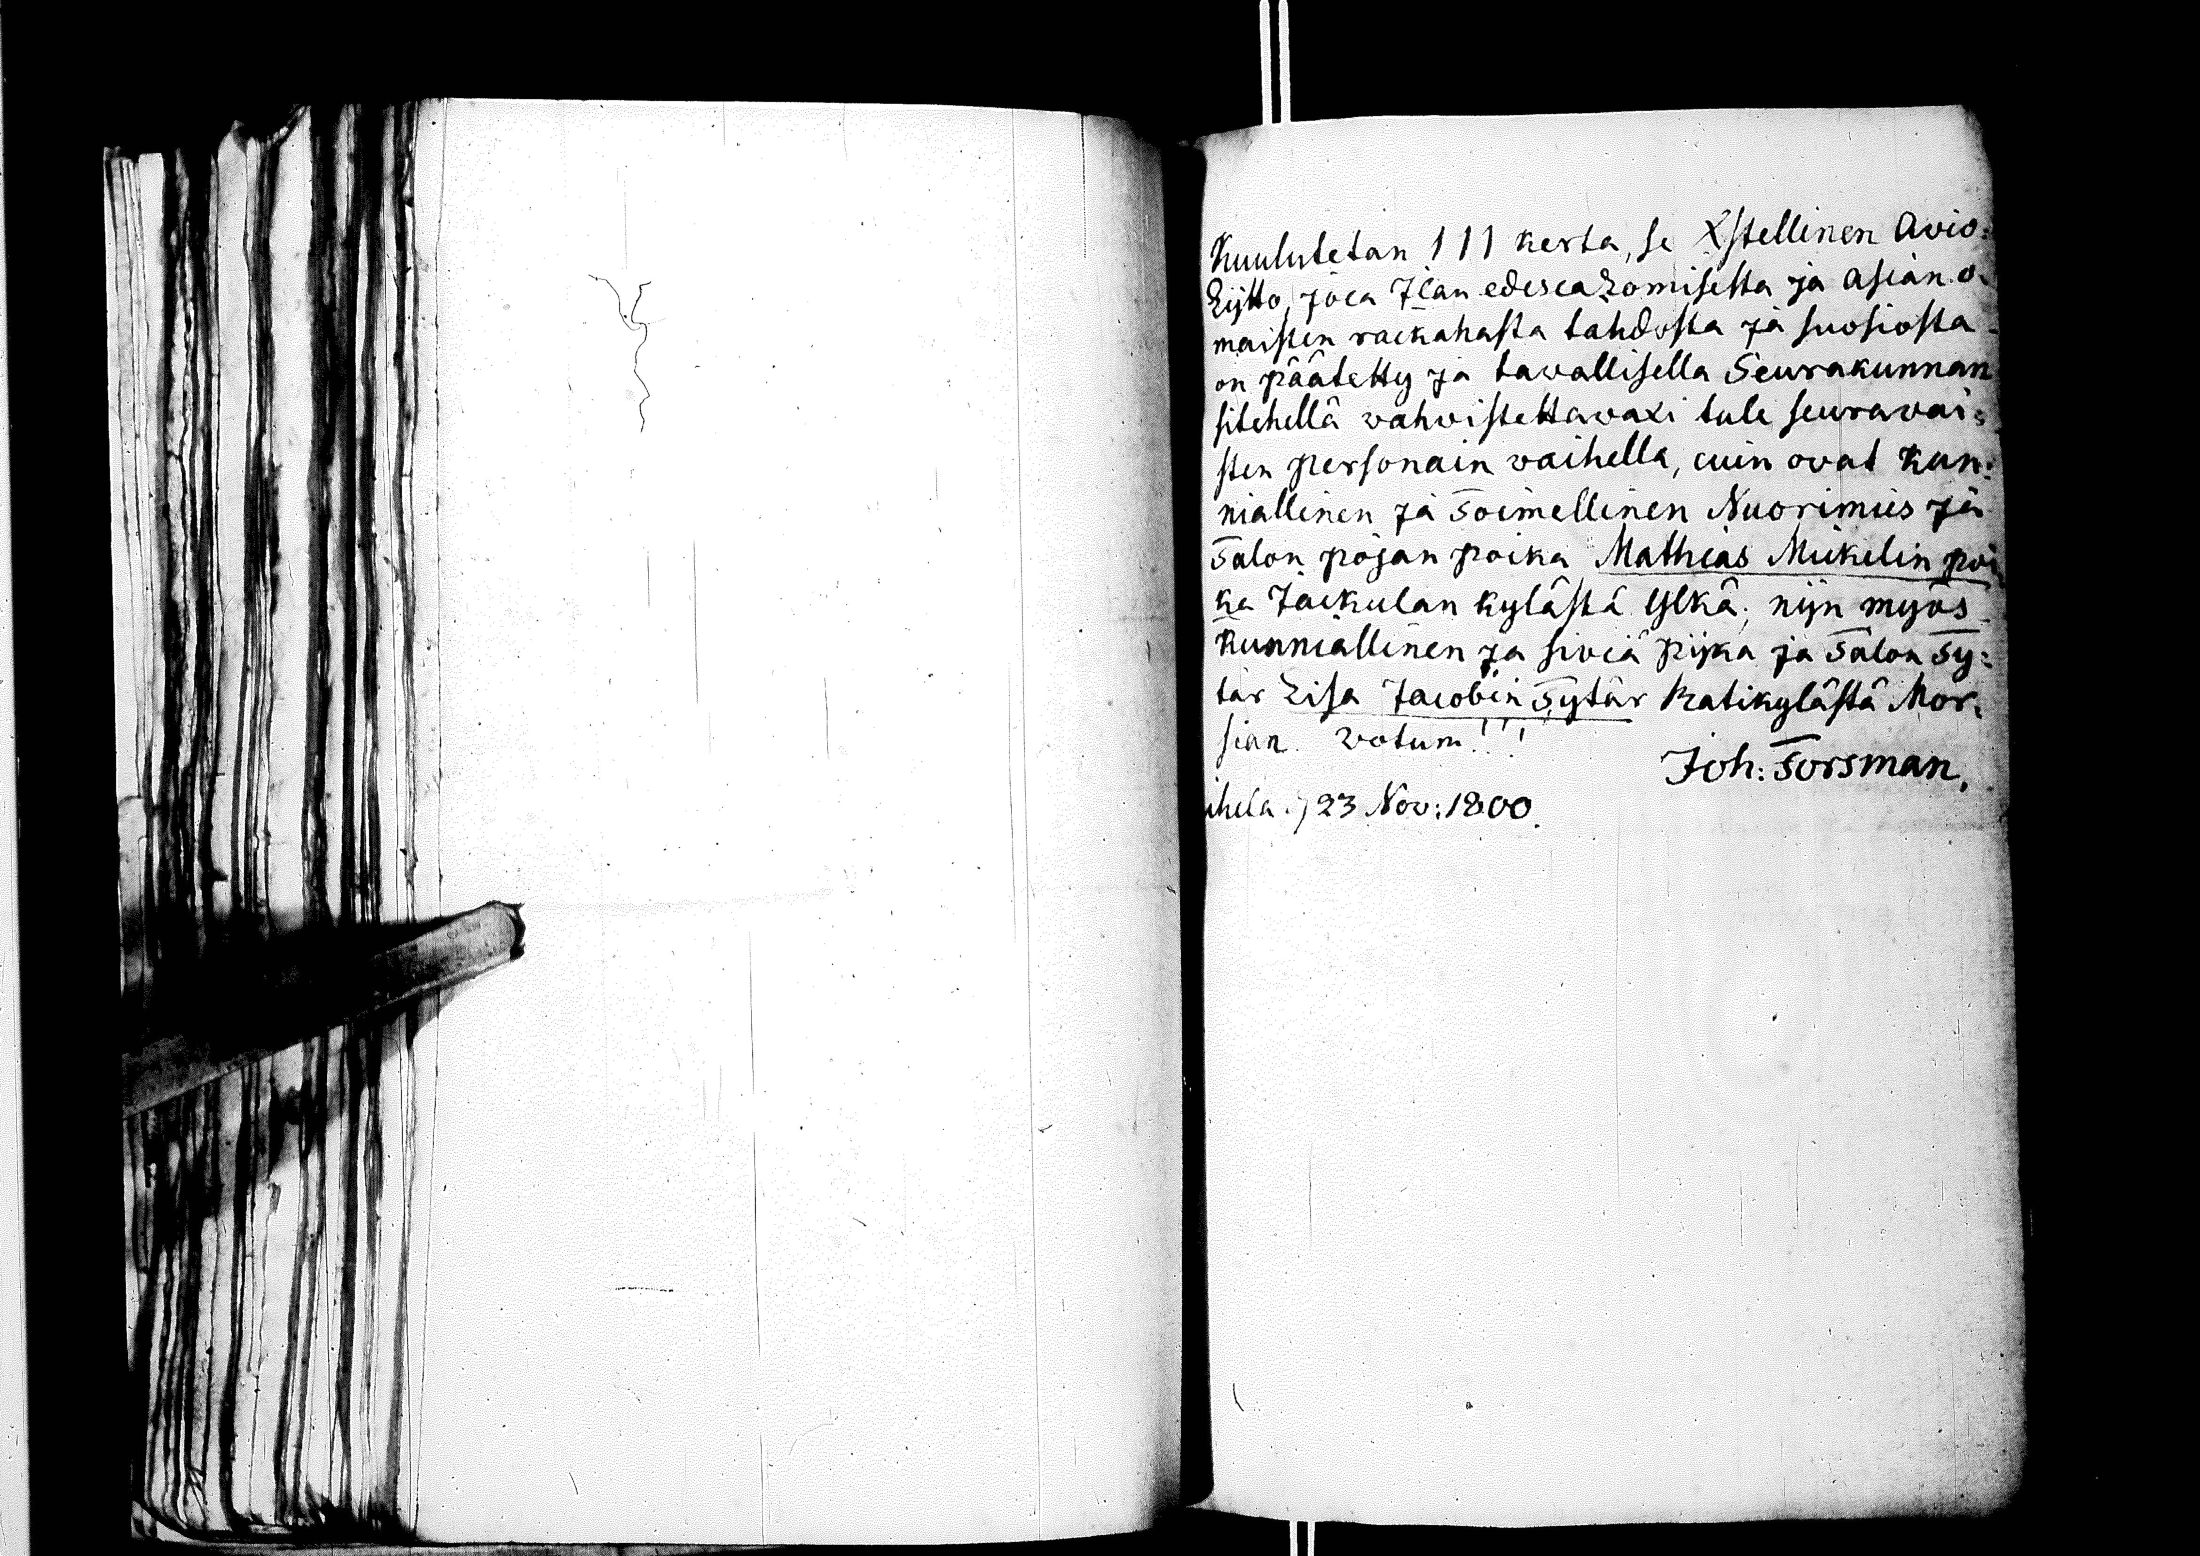 Kuulutetan 111 kerta, se Xstellinen Avio:
Lijtto, joca Ilan edescazomisesta ja asian o-
maisten rackahasta tahdosta ja suosiosta
on päätetty ja tavallisella Seurakunnan
sitehellä vahvistettavaxi tule seuravai:
sten personain vaihella, cuin ovat kun:
niallinen ja Toimellinen Nuorimies ja
Talon pojan poika Mathias Mickelin poi
ka Jackulan kylästä Ylkä; nijn myös
kunniallinen ja siviä pijka ja Talon Ty:
tär Lisa Jacobin Tytär Ratikylästä Mor:
sian. Votum!!!
Joh: Forsman.
ihela :/ 23 Nov: 1800.